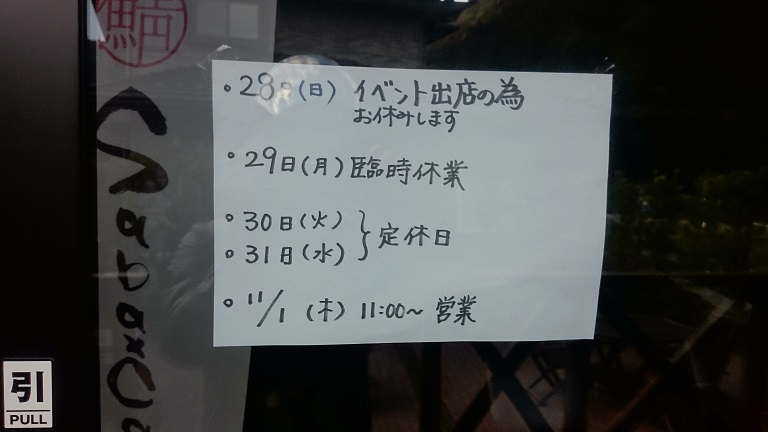 鯖
・28日(日) イベント出店の為
お休みします
・29日(月) 臨時休業
・30日(火)
・31日(水) } 定休日
・11/1 (木) 11:00〜 営業
引
PULL